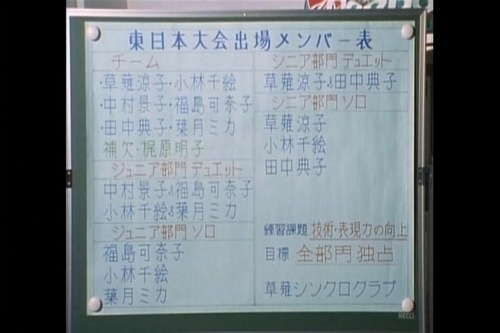 東日本大会出場メンバー表
チーム
・草薙涼子・小林千絵
・中村景子・福島可奈子
・田中典子・葉月ミカ
補欠・梶原明子
ジュニア部門 デュエット
中村景子&福島可奈子
小林千絵&葉月ミカ
ジュニア部門 ソロ
福島可奈子
小林千絵
葉月ミカ
シニア部門 デュエット
草薙涼子&田中典子
シニア部門 ソロ
草薙涼子
小林千絵
田中典子
練習課題 技術・表現力の向上
目標 全部門独占
草薙シンクロクラブ